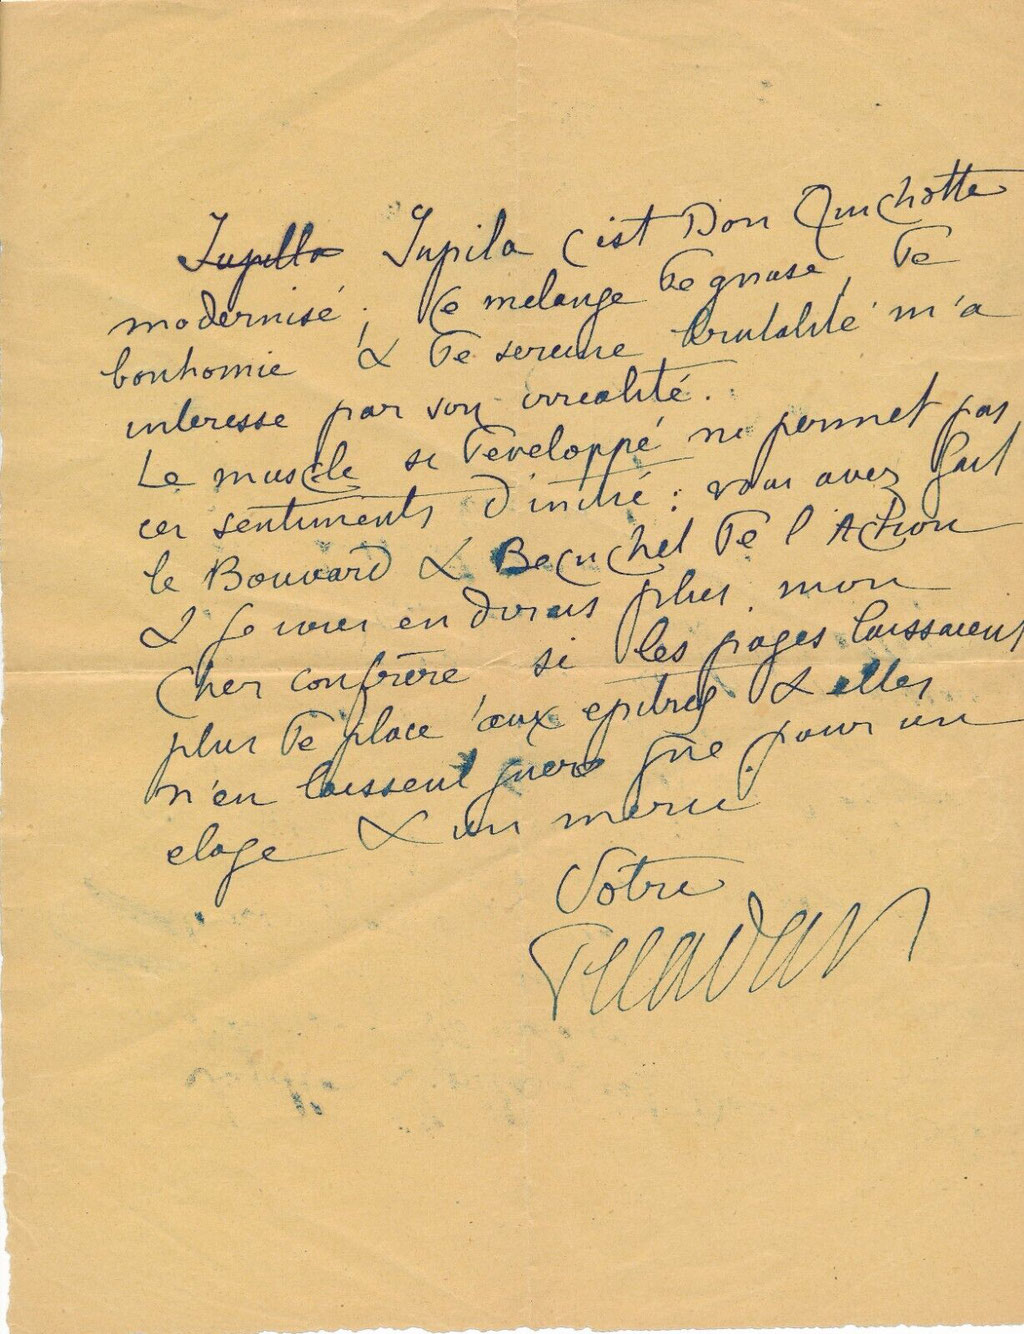 ~~Jupilla~~ Jupila c'est Don Quichotte
modernisé; ce melange de
bonhomie & de sereine brutalité m'a
interesse par son irrealité.
Le muscle si developpé ne permet pas
ces sentiments d'initié : vous avez fait
le Bouvard & Becuchet de l'Action
& je vous en dirais plus, mon
cher confrère, si les pages laissaient
plus de place aux epitres & elles
n'en laissent guere que pour un
eloge & un merci
Votre
Peladan